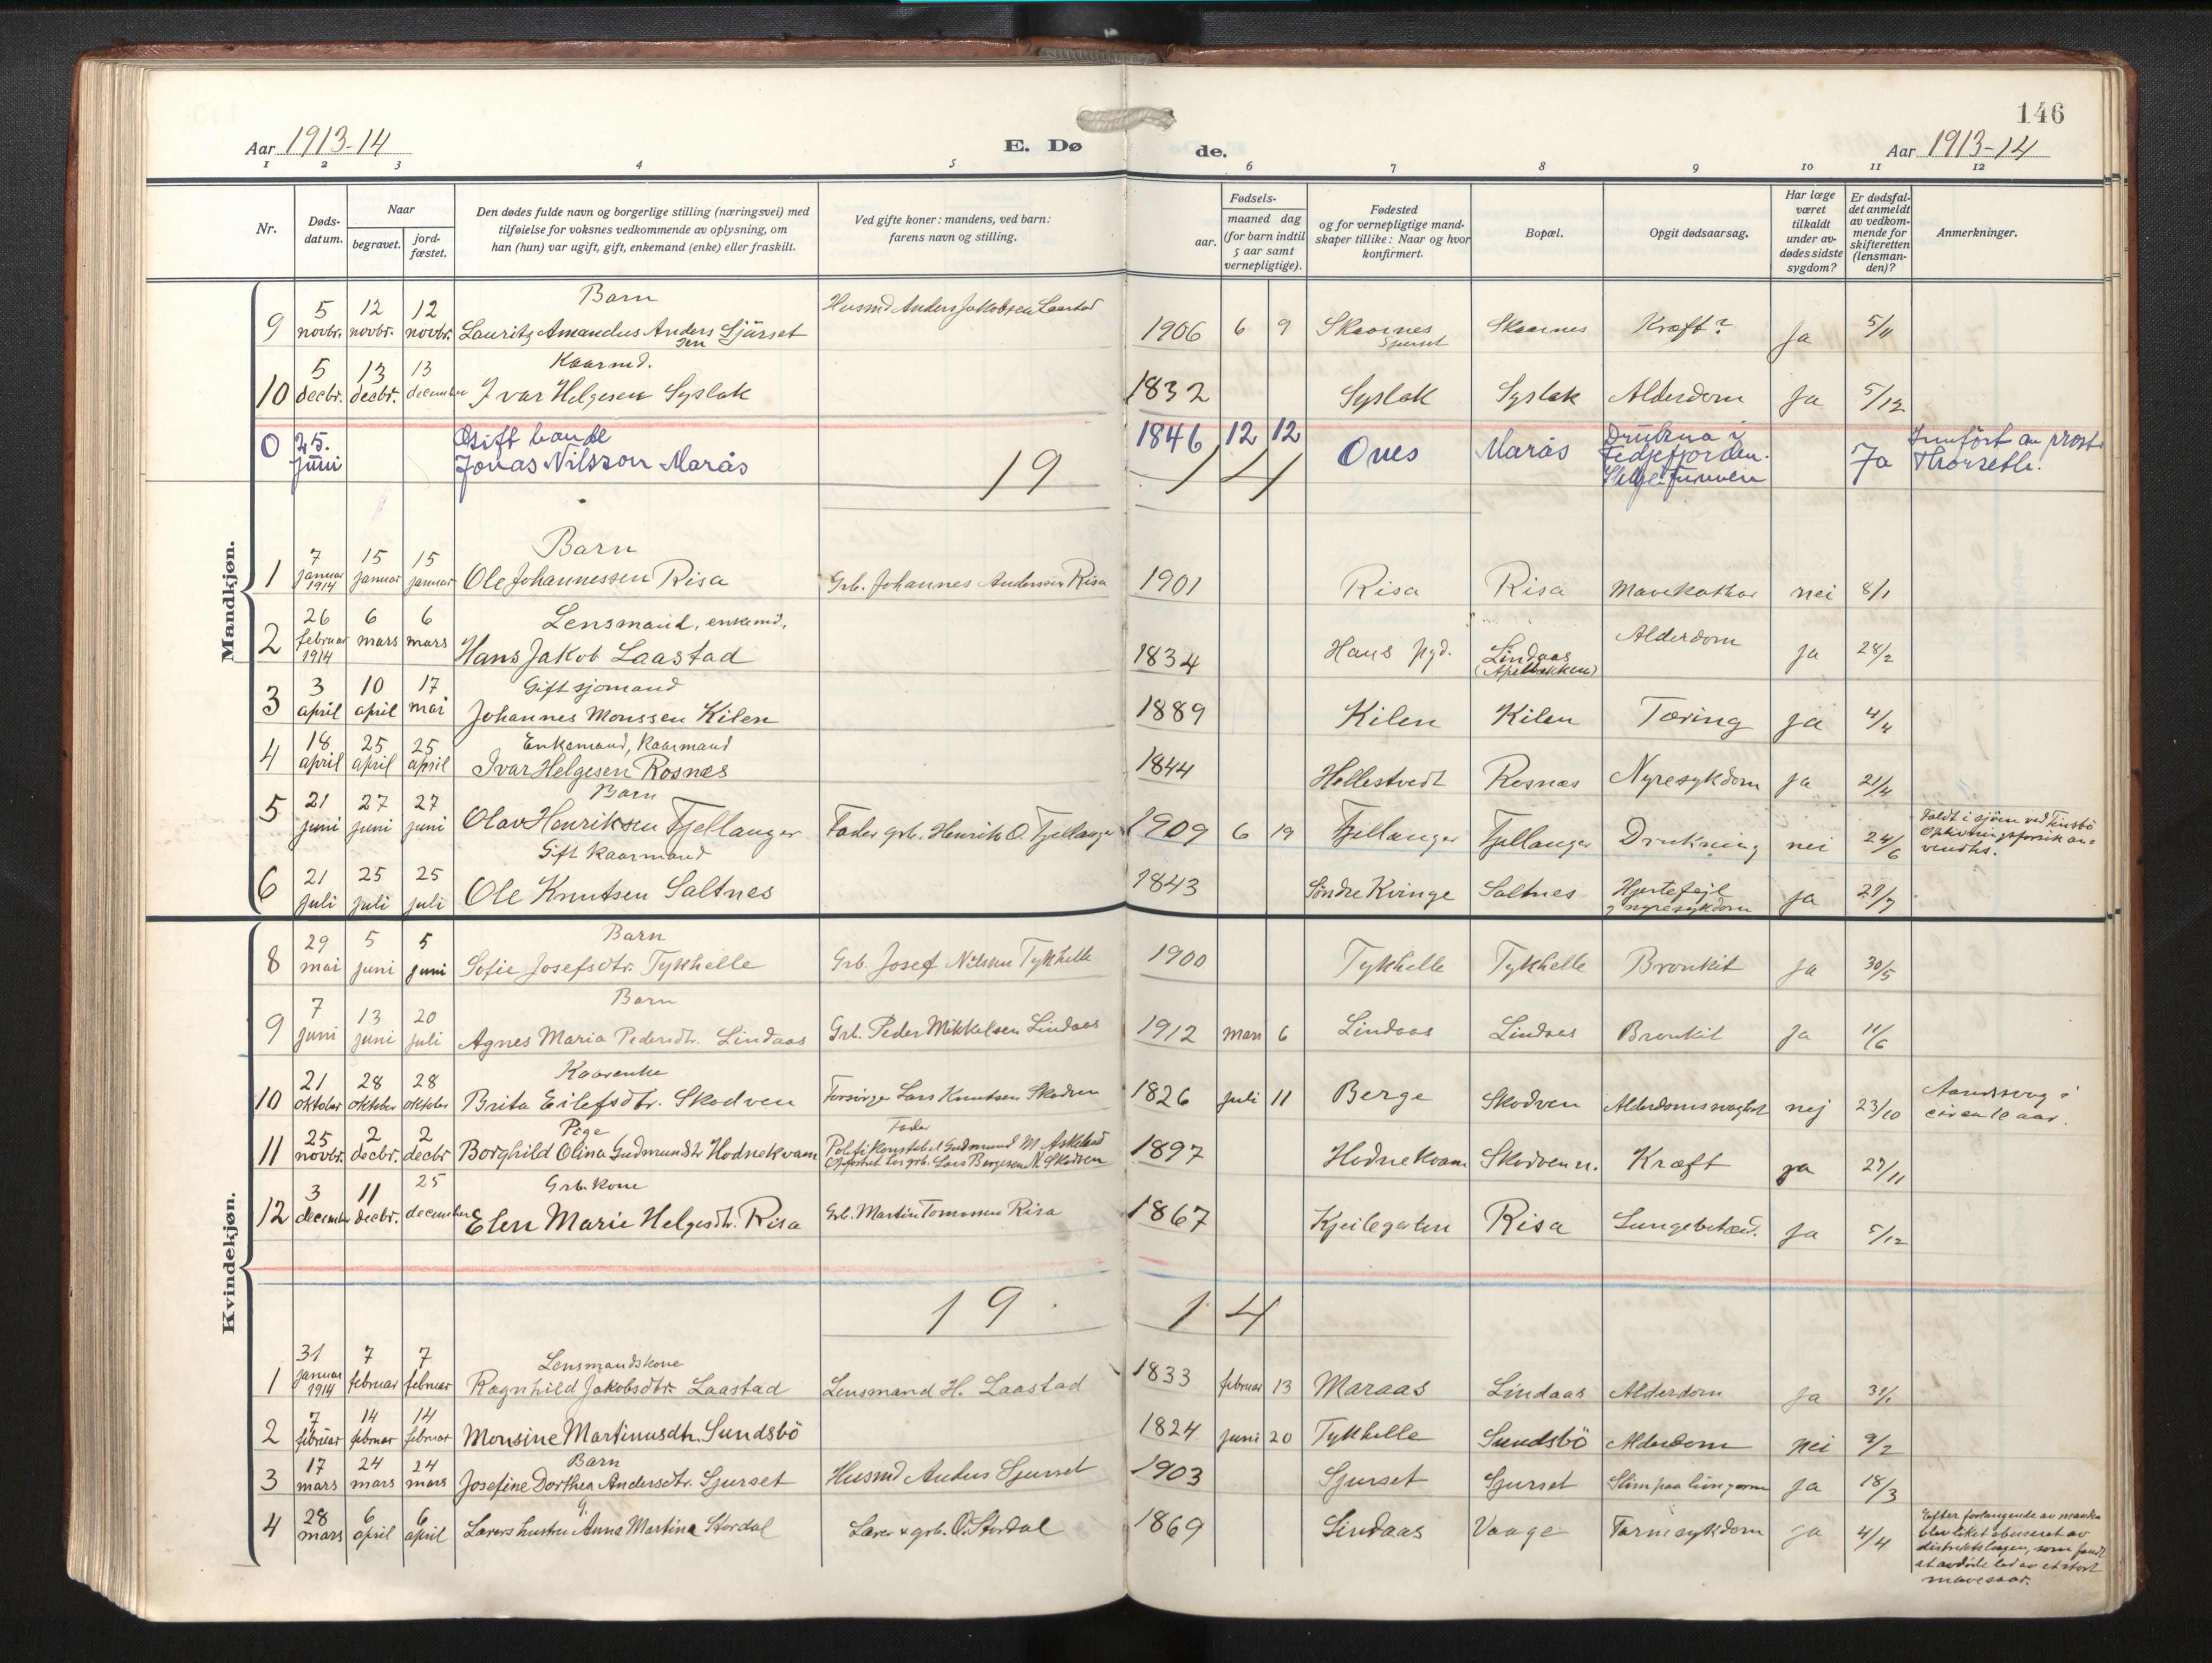 146
Aar 1913-14
E. Dø de.
Aar 1913-14
1 2 3 4 5 6 7 8 9 10 11 12
Nr.
Døds-
datum.
Naar
begravet.
jord-
fæstet.
Den dødes fulde navn og borgerlige stilling (næringsvei) med
tilføielse for voksnes vedkommende av oplysning, om
han (hun) var ugift, gift, enkemand (enke) eller fraskilt.
Ved gifte koner: mandens, ved barn:
farens navn og stilling.
Fødsels-
aar.
maaned dag
(for barn indtil
5 aar samt
vernepligtige).
Fødested
og for vernepligtige mand-
skaper tillike: Naar og hvor
konfirmert.
Bopæl.
Opgit dødsaarsag.
Har læge
været
tilkaldt
under av-
dødes sidste
sygdom?
Er dødsfal-
det anmeldt
av vedkom-
mende for
skifteretten
(lensman-
den)?
Anmerkninger.
Mandkjøn.
Barn
9 5 novbr. 12 novbr. 12 novbr. Lauritz Amandus Anderssen Sjurset Husmd Anders Jakobsen Laastad 1906 6 9 Skaanes Sjurset Skaanes Kræft? Ja 5/11
Kaarmd.
10 5 decbr. 13 decbr. 13 december Ivar Helgesen Syslak 1832 Syslak Syslak Alderdom Ja 5/12
Gift bonde
0 25. juni Jonas Nilsson Marås 1846 12 12 Ones Marås Drukna i Fedjefjorden. Ja Innført av prost Thorseth.
19 14
Barn
1 7 januar 1914 15 januar 15 januar Ole Johannessen Risa Grb. Johannes Anderssen Risa 1901 Risa Risa Mavekathar nei 8/1
Lensmand, enkemd.
2 26 februar 1914 6 mars 6 mars Hans Jakob Laastad 1834 Haus pgd. Lindaas (Apelbakken) Alderdom ja 28/2
Gift sjømand
3 3 april 10 april 17 mai Johannes Monssen Kilen 1889 Kilen Kilen Tæring ja 4/4
Enkemand, Kaarmand
4 18 april 25 april 25 april Ivar Helgesen Rosnes 1844 Hellestvedt Rosnes Nyresykdom ja 21/4
Barn
5 21 juni 27 juni 27 juni Olav Henriksen Fjellanger Fader grb. Henrik O. Fjellanger 1909 6 19 Fjellanger Fjellanger Drukning nei 24/6 Faldt i sjøen ved
Oplivningsforsøk an-
vendtes.
Gift Kaarmand
6 21 juli 25 juli 25 juli Ole Knutsen Saltnes 1843 Søndre Kvinge Saltnes Hjertefejl og nyresykdom ja 29/7
Kvindekjøn.
Barn
8 29 mai 5 juni 5 juni Sofie Josefsdtr. Tykhelle Grb. Josef Nilsen Tykhelle 1900 Tykhelle Tykhelle Bronkit ja 30/5
Barn
9 7 juni 13 juni 20 juli Agnes Maria Pedersdtr. Lindaas Grb. Peder Mikkelsen Lindaas 1912 mars 6 Lindaas Lindaas Bronkit ja 11/6
Kaarenke
10 21 oktober 28 oktober 28 oktober Brita Eilefsdtr. Skodven Forsørger Lars Knutsen Skodven 1826 juli 11 Berge Skodven Alderdomssvaghet nej 23/10 Aandssvag i
circa 10 aar.
Pige Fader
11 25 novbr. 2 decbr. 2 decbr Borghild Olina Gudmundsdtr Hodnekvam Politikonstabel Gudmund M. Askeland
Opfostret hos grb. Lars Børgesen N. Skodven 1897 Hodnekvam Skodven n. Kræft ja 27/11
Grb. kone
12 3 december 11 decbr. 25 december Elen Marie Helgesdtr. Risa Grb. Martin Tomassen Risa 1867 Kjeilegaten Risa Lungebetænd. ja 5/12
19 14
Lensmandskone
1 31 januar 1914 7 februar 7 februar Ragnhild Jakobsdtr Laastad Lensmand H. Laastad 1833 februar 13 Maraas Lindaas Alderdom ja 31/1
2 7 februar 14 februar 14 februar Monsine Martinusdtr. Sundsbö 1824 juni 20 Tykhelle Sundsbö Alderdom nei 9/2
Barn
3 17 mars 24 mars 24 mars Josefine Dorthea Andersdtr. Sjurset Husmd Anders Sjurset 1903 Sjurset Sjurset Slim paa lungerne ja 18/3
4 28 mars 6 april 6 april Lærers hustru Anna Martina Stordal Lærer & grb. O. Stordal 1869 Lindaas Vaage Tarmsykdom ja 4/4 Efter forlangende av manden
blev liket obduseret av
distriktslægen, som fandt
at avdöde led av et stort
mavesaar.